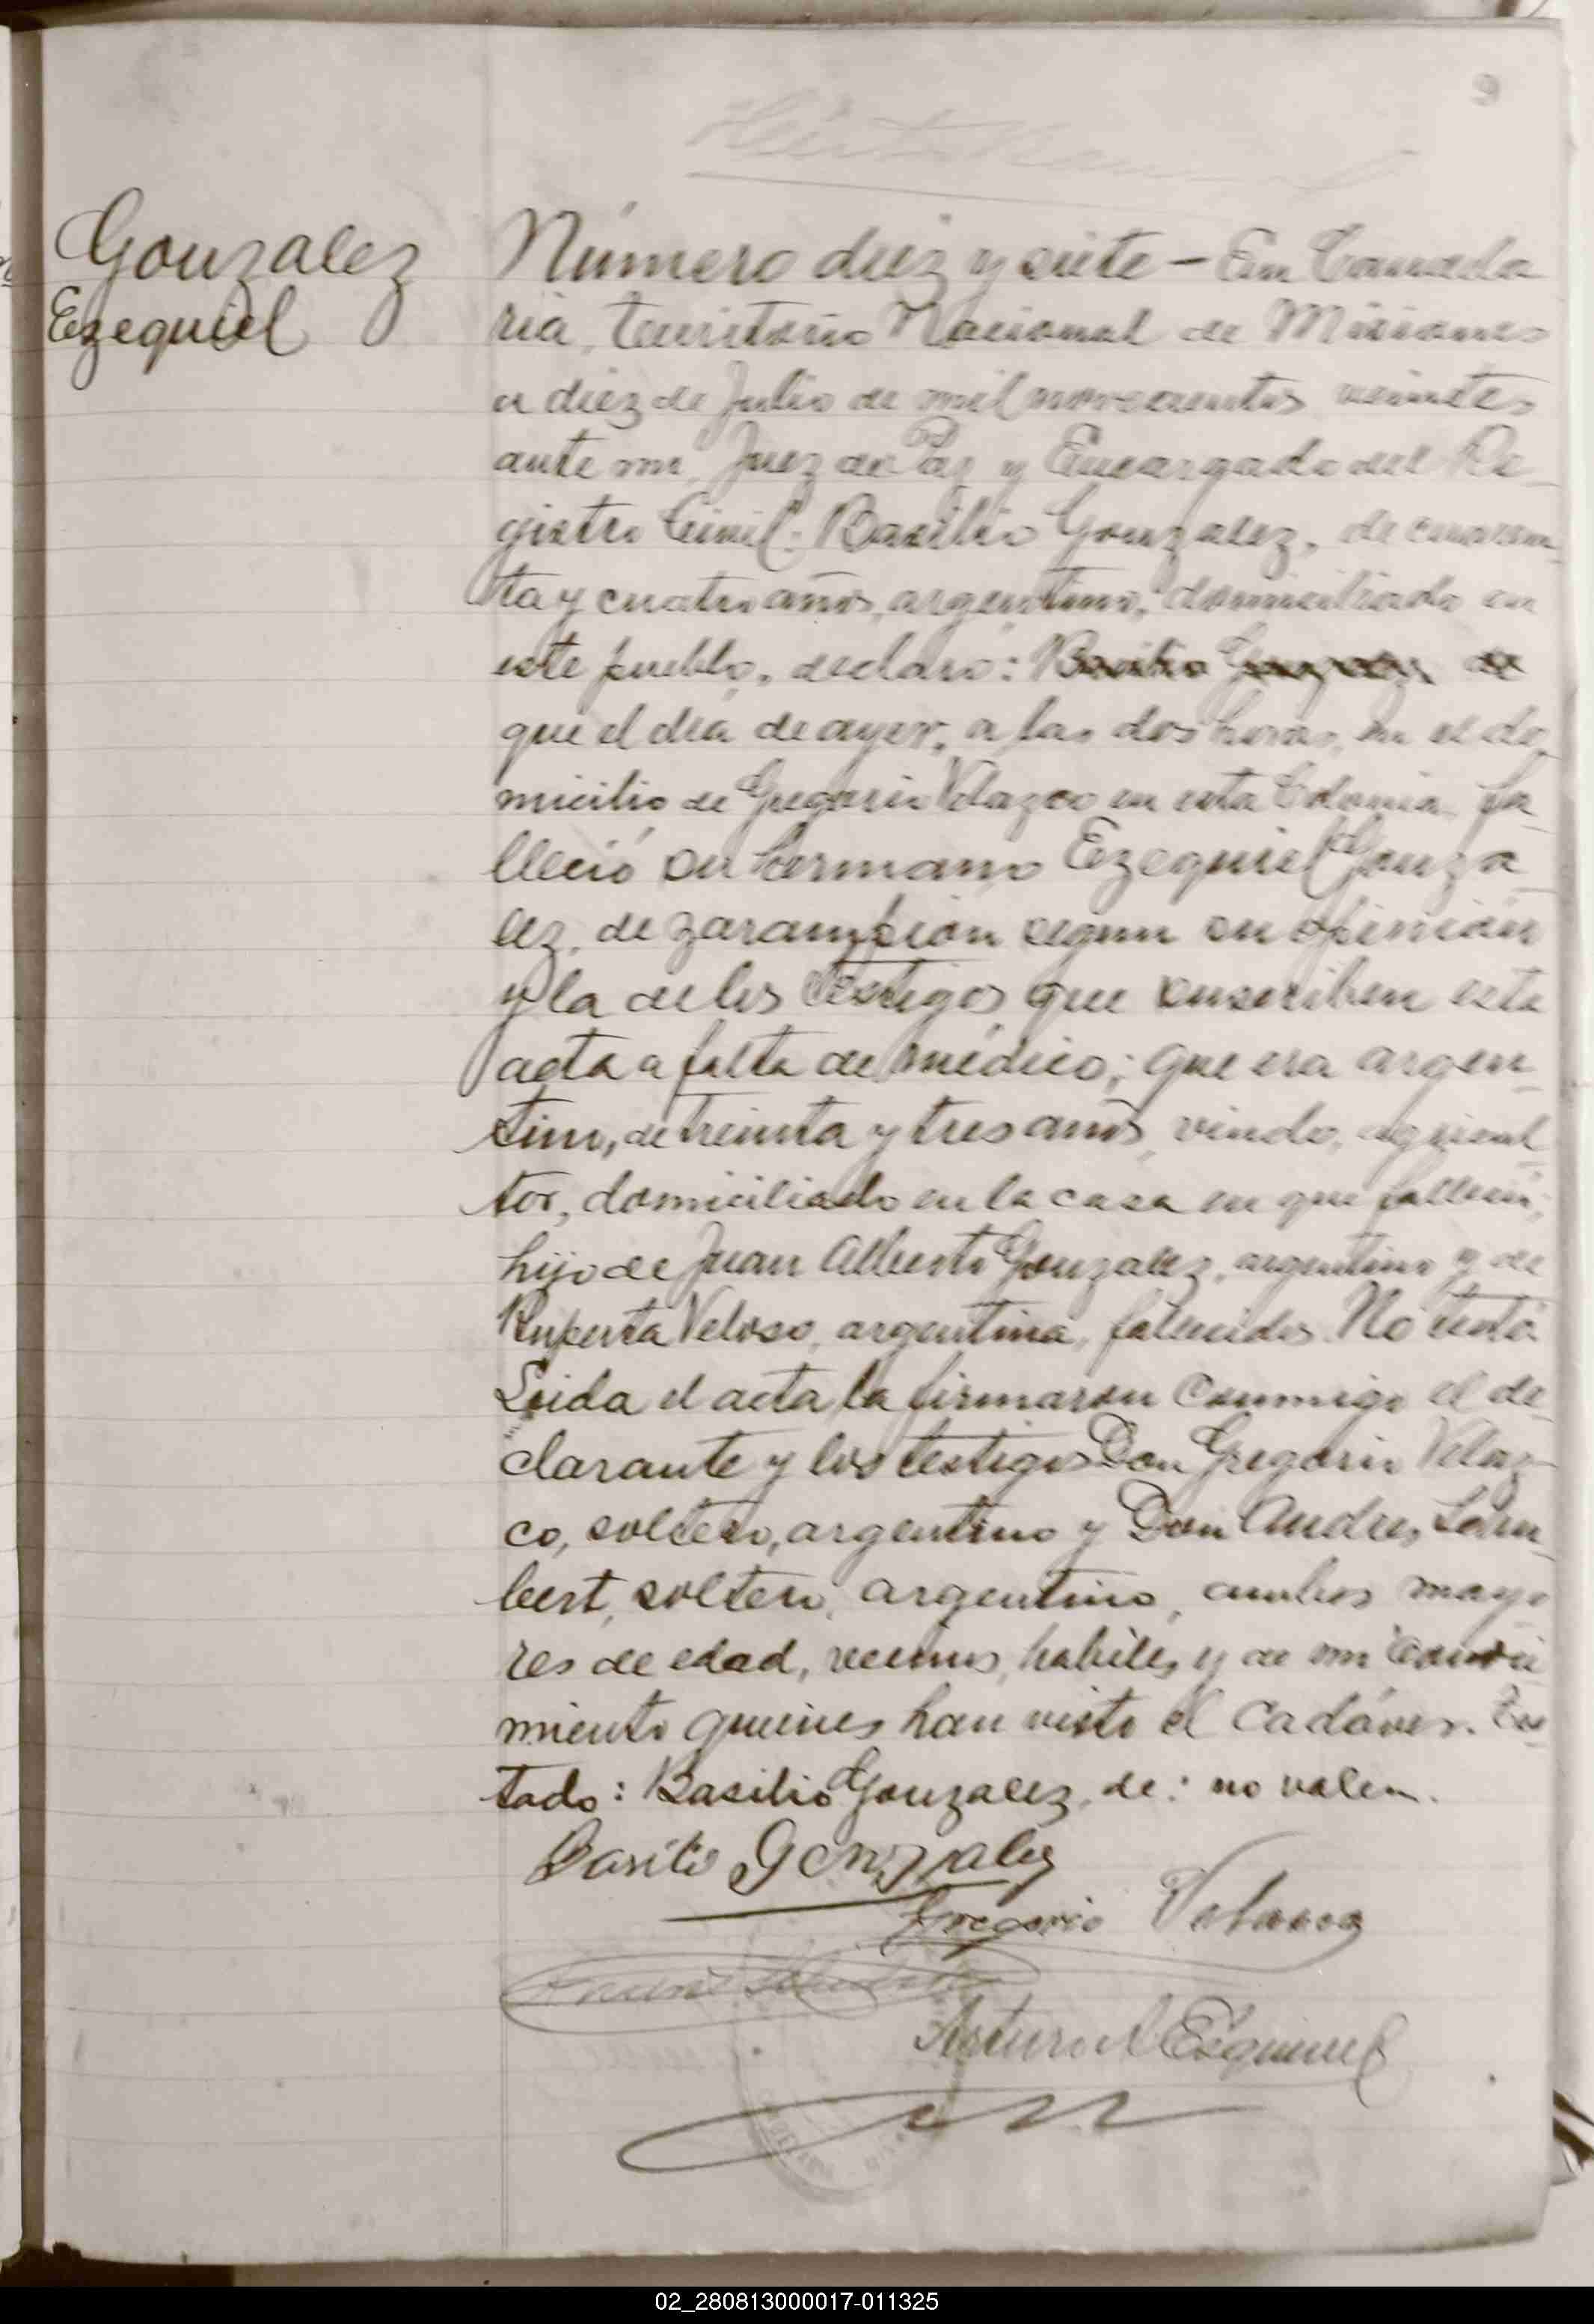 9
Gonzalez
Ezequiel
Número diez y siete - En Candela
ria, territorio Nacional de Misiones
a diez de Julio de mil novecientos veinte,
ante mi, Juez de Paz y Encargado del Re-
gistro Civil: Basilio Gonzalez, de cuaren-
ta y cuatro años, argentino, domiciliado en
este pueblo, declaro: Basilio Gonzalez, de
que el día de ayer, a las dos horas, en el do-
micilio de Gregorio Velazco en esta Colonia, fa-
lleció su hermano Ezequiel Gonza-
lez, de zarampion segun su opinión
y la de los testigos que suscriben esta
acta a falta de médico; que era argen-
tino, de treinta y tres años, viudo, agricul-
tor, domiciliado en la casa en que falleció;
hijo de Juan Alberto Gonzalez, argentino y de
Ruperta Veloso, argentina, fallecidos. No testó
Leida el acta la firmaron conmigo el de-
clarante y los testigos Don Gregorio Velaz-
co, soltero, argentino y Don Andres Lam-
bert, soltero, argentino, ambos mayo
res de edad, vecinos, habiles y de mi conoci
miento quienes han visto el cadáver. Tes-
tado: Basilio Gonzalez, de: no valen.
Basilio Gonzalez
Gregorio Velasco
Arturo A Esquivel
02_280813000017-011325